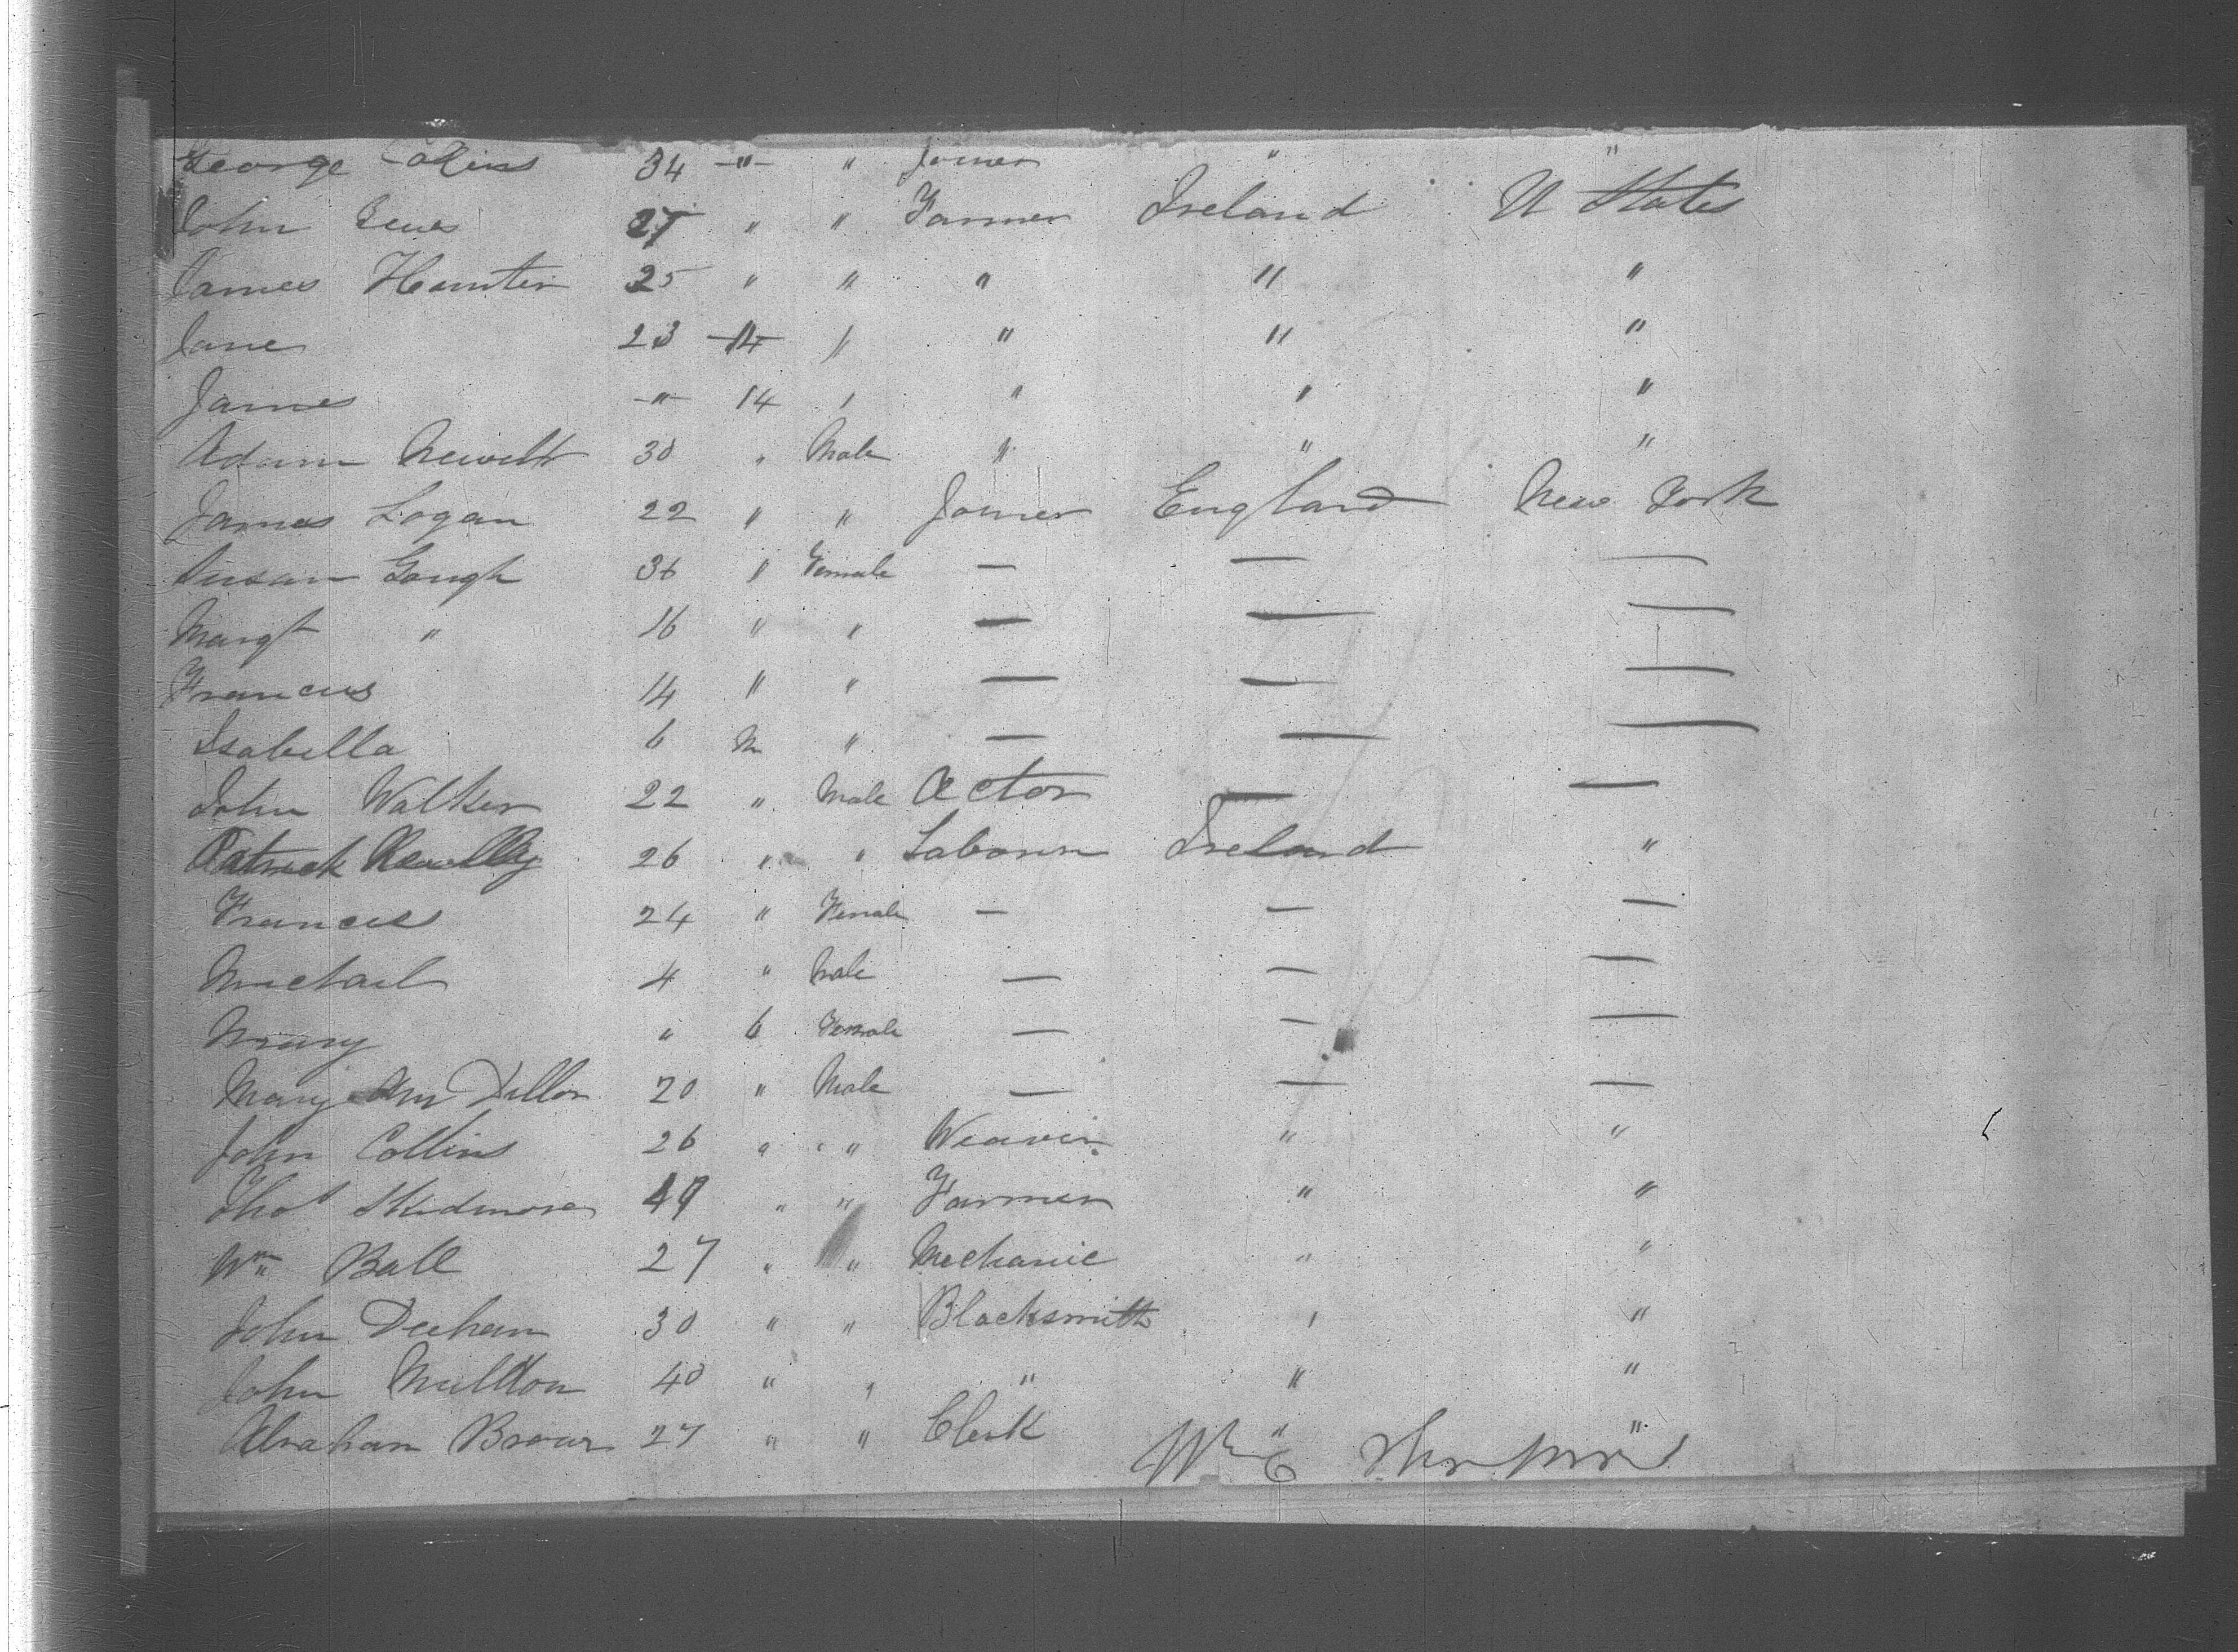 George 34 -"- " Joiner " "
John 27 " " Farmer Ireland U States
James Hunter 25 " " " " "
Jane 23 " " " "
James -"- 14 " " " "
Adam Newell 30 " Male " " "
James Logan 22 " " Joiner England New York
Susan Gough 36 " Female — — —
Margt " 16 " " — — —
Francus 14 " " — — —
Isabella 6 M " — — —
John Walker 22 " Male Actor — —
Patrick 26 " " Labourer Ireland "
Frances 24 " Female — — —
Michail 4 " Male — — —
Mary " 6 Female — — —
Mary Ann Dillon 20 " Male — — —
John Collins 26 " " Weaver " "
Thos Skidmore 49 " " Farmer " "
Wm Ball 27 " " Mechanic " "
John Deehan 30 " " Blacksmith " "
John 40 " " " " "
Abraham Brown 27 " " Clerk " "
Wm C Thompson